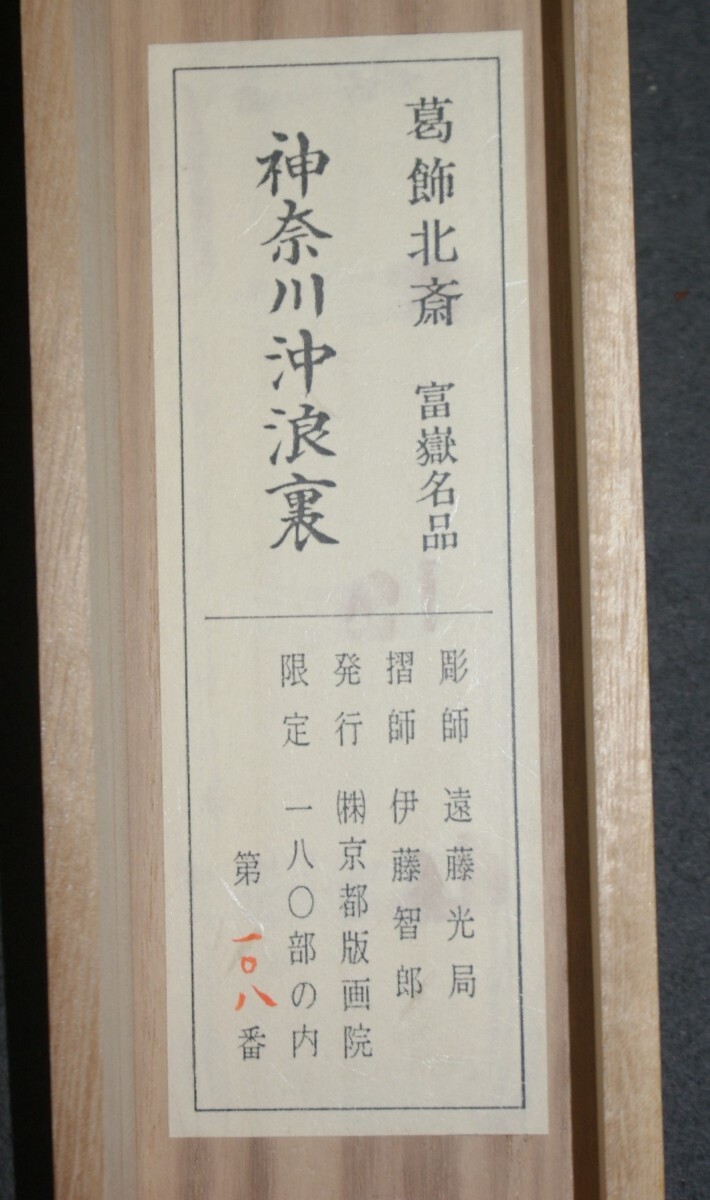 葛飾北斎 富嶽名品
神奈川沖浪裏
彫師 遠藤光局
摺師 伊藤智郎
発行 ㈱京都版画院
限定 一八〇部の内
第一〇八番